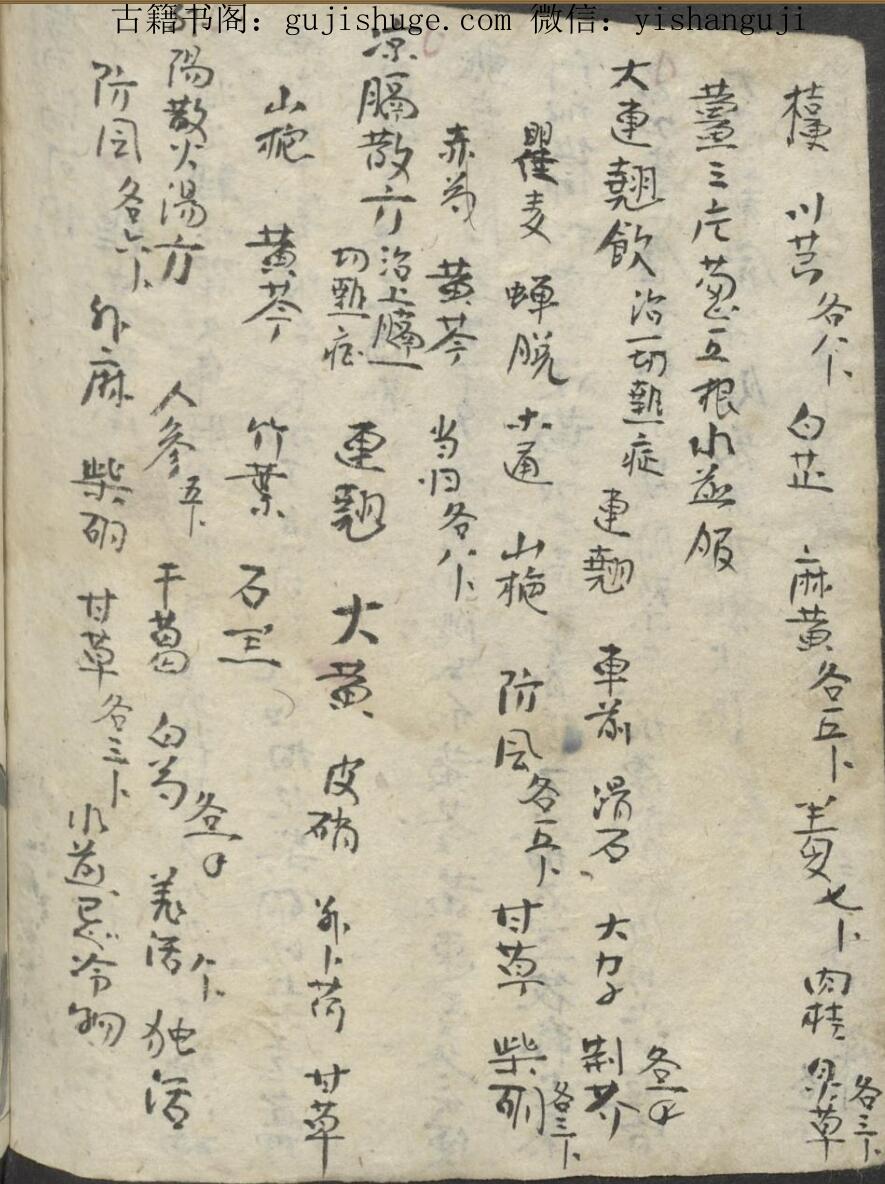 古籍书阁：gujishuge.com 微信：yishanguji
川芎 各 白芷 麻黄 各五卜 七卜 肉桂 草 各三卜
薑三片葱五根水煎服
大連翹飲 治一切熱症 連翹 車前 滑石 大力子 荆芥
瞿麦 蝉脱 木通 山栀 防風 各五卜 甘草 柴胡 各三卜
赤芍 黄芩 当归 各八卜
凉膈散方 治上膈一切熱症 連翹 大黄 皮硝 荷 甘草
山栀 黄芩 竹葉 石
陽散火湯方 人参 五卜 干葛 白芍 羌活 独活
防風 各六卜 升麻 柴胡 甘草 各三卜 水煎忌冷物